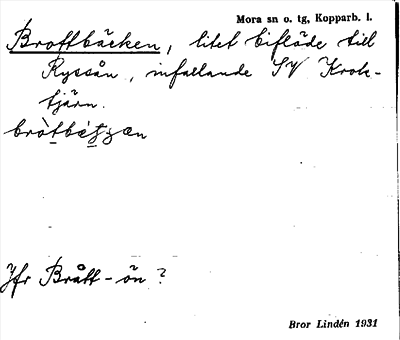 Mora sn o. tg, Kopparb. l.
Brottbäcken, litet biflöde till
Ryssån, infallande SV Krok-
tjärn.
Jfr Brått-ön?
Bror Lindén 1931